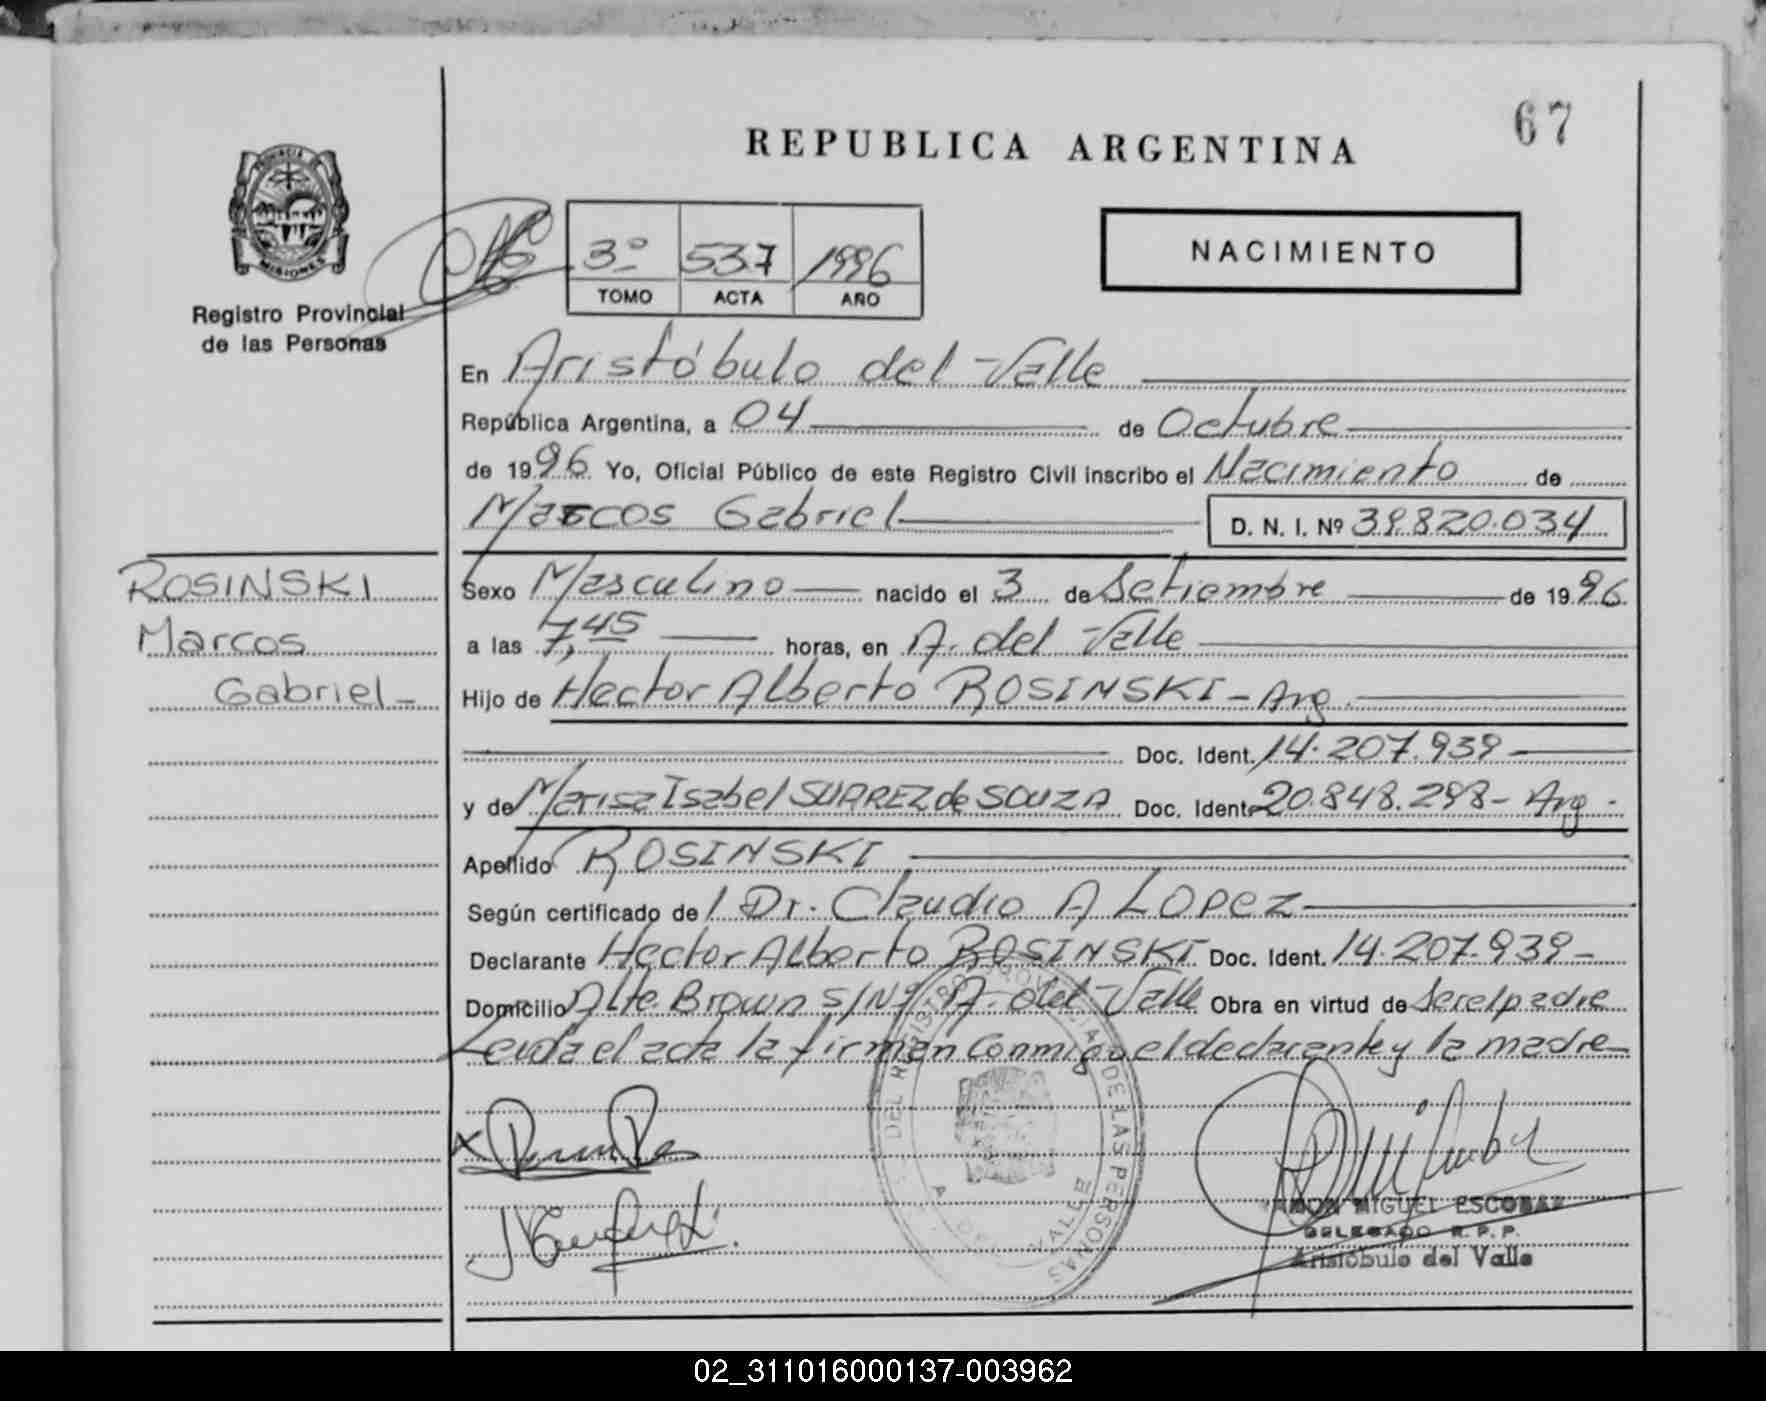 67
REPUBLICA ARGENTINA
PROVINCIA DE
MISIONES
Registro Provincial
de las Personas
3º 537 1996
TOMO ACTA AÑO
NACIMIENTO
En Aristóbulo del Valle
República Argentina, a 04 de Octubre
de 1996 Yo, Oficial Público de este Registro Civil inscribo el Nacimiento de
Marcos Gabriel D. N. I. Nº 39.820.034
ROSINSKI
Marcos
Gabriel-
Sexo Masculino nacido el 3 de Setiembre de 1996
a las 7,45 horas, en A. del Valle
Hijo de Hector Alberto ROSINSKI - Arg.
Doc. Ident. 14.207.939
y de Marisa Isabel SUAREZ de SOUZA Doc. Ident. 20.848.298 - Arg.
Apellido ROSINSKI
Según certificado de Dr. Claudio A LOPEZ
Declarante Hector Alberto ROSINSKI Doc. Ident. 14.207.939-
Domicilio Alte. Brown S/Nº A. del Valle Obra en virtud de Ser el padre
Leida el acta la firman Conmigo el declarante y la madre
DEL REGISTRO PROVINCIAL DE LAS PERSONAS
A. DEL VALLE
RAMON MIGUEL ESCOBAR
DELEGADO R.P.P.
Aristóbulo del Valle
02_311016000137-003962